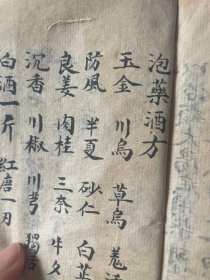 泡藥酒方
玉金 川烏 草烏
防風 半夏 砂仁 白
良姜 肉桂 三奈 牛夕
沉香 川椒 川芎 獨活
白酒一斤 紅唐一刃